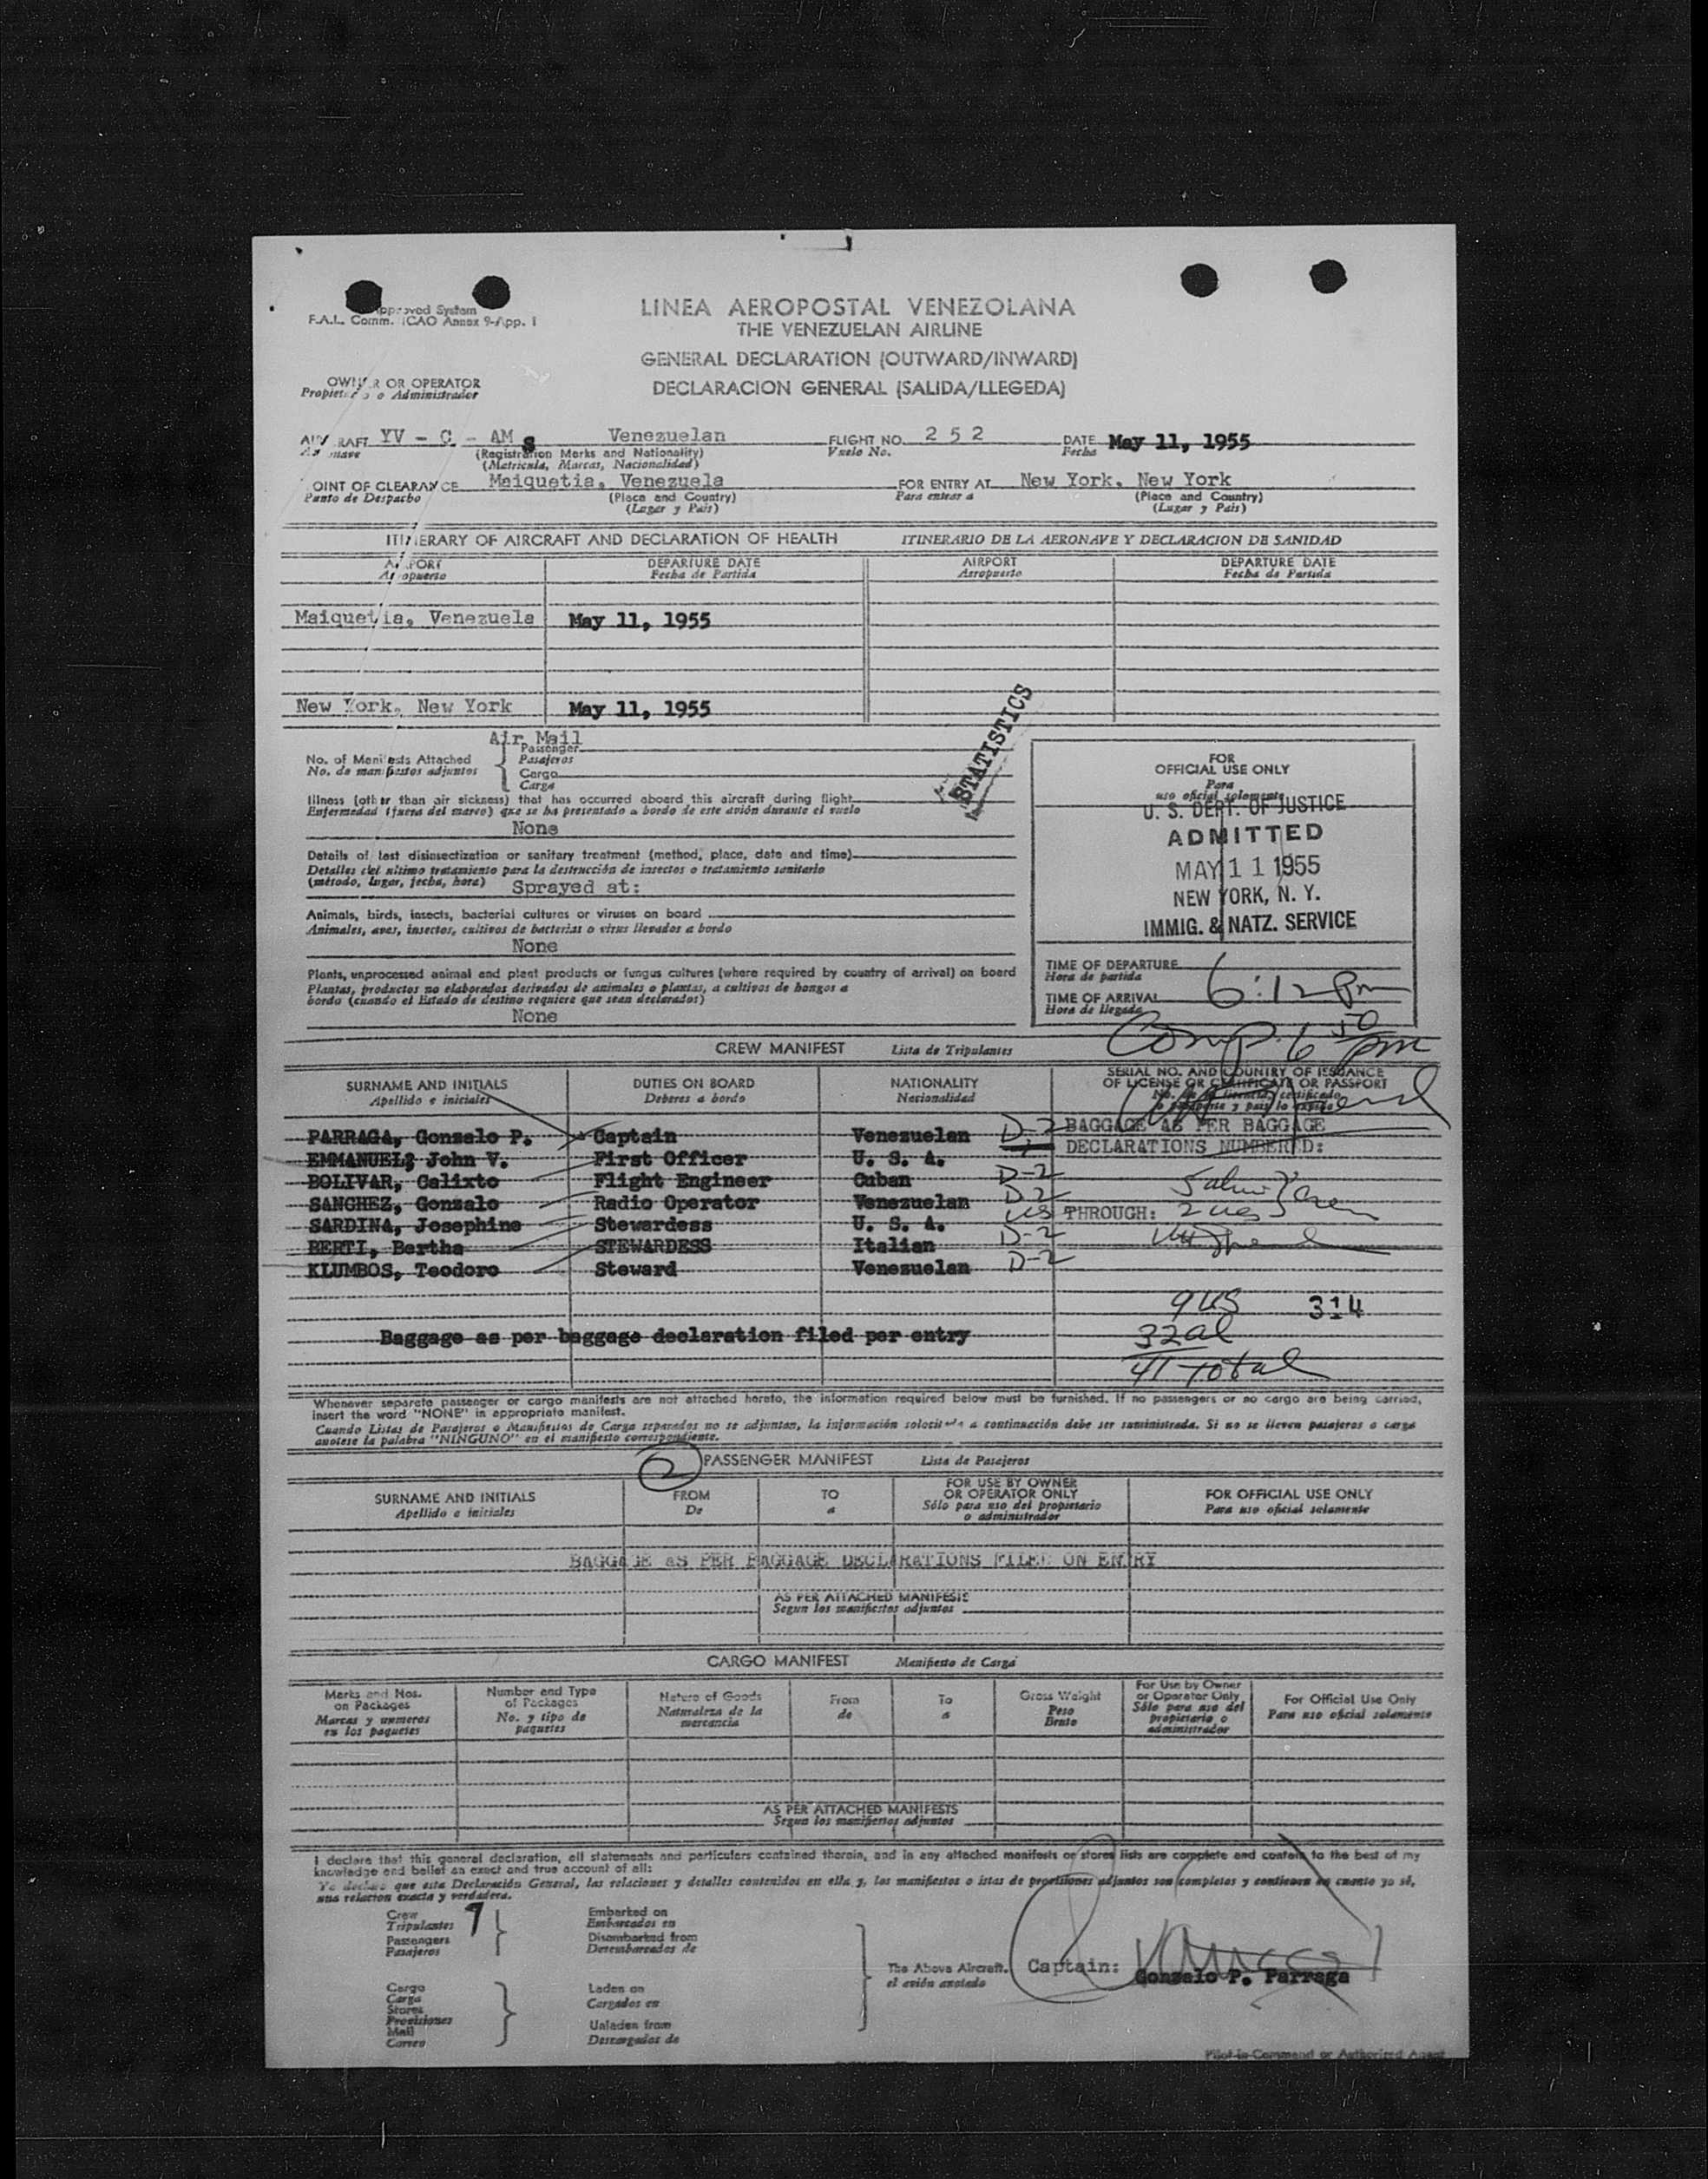 Approved System
F.A.L. Comm. ICAO Annex 9-App. 1
LINEA AEROPOSTAL VENEZOLANA
THE VENEZUELAN AIRLINE
GENERAL DECLARATION (OUTWARD/INWARD)
DECLARACION GENERAL (SALIDA/LLEGEDA)
OWNER OR OPERATOR
Propietario o Administrador
AIRCRAFT YV - C - AM S Venezuelan FLIGHT NO. 2 5 2 DATE May 11, 1955
(Registration Marks and Nationality) Vuelo No. Fecha
(Matricula, Marcas, Nacionalidad)
POINT OF CLEARANCE Maiquetia, Venezuela FOR ENTRY AT New York, New York
Punto de Despacho (Place and Country) Para entrar a (Place and Country)
(Lugar y Pais) (Lugar y Pais)
ITINERARY OF AIRCRAFT AND DECLARATION OF HEALTH ITINERARIO DE LA AERONAVE Y DECLARACION DE SANIDAD
AIRPORT DEPARTURE DATE AIRPORT DEPARTURE DATE
Aeropuerto Fecha de Partida Aeropuerto Fecha de Partida
Maiquetia, Venezuela May 11, 1955
New York, New York May 11, 1955
Air Mail
No. of Manifests Attached Passenger
No. de manifiestos adjuntos Pasajeros
Cargo
Carga
STATISTICS
Illness (other than air sickness) that has occurred aboard this aircraft during flight
Enfermedad (fuera del mareo) que se ha presentado a bordo de este avión durante el vuelo
None
Details of last disinsectization or sanitary treatment (method, place, date and time)
Detalles del ultimo tratamiento para la destrucción de insectos o tratamiento sanitario
(método, lugar, fecha, hora) Sprayed at:
Animals, birds, insects, bacterial cultures or viruses on board
Animales, aves, insectos, cultivos de bacterias o virus llevados a bordo
None
Plants, unprocessed animal and plant products or fungus cultures (where required by country of arrival) on board
Plantas, productos no elaborados derivados de animales o plantas, a cultivos de hongos a
bordo (cuando el Estado de destino requiere que sean declarados)
None
FOR
OFFICIAL USE ONLY
Para
uso oficial solamente
U. S. DEPT. OF JUSTICE
ADMITTED
MAY 11 1955
NEW YORK, N. Y.
IMMIG. & NATZ. SERVICE
TIME OF DEPARTURE
Hora de partida
6:12 Pm
TIME OF ARRIVAL
Hora de llegada
Comp. 6 50 pm
CREW MANIFEST Lista de Tripulantes
SURNAME AND INITIALS DUTIES ON BOARD NATIONALITY SERIAL NO. AND COUNTRY OF ISSUANCE
OF LICENSE OR CERTIFICATE OR PASSPORT
Apellido e iniciales Deberes a bordo Nacionalidad No. de la licencia, certificado
o pasaporte y pais lo expide
PARRAGA, Gonzalo P. Captain Venezuelan D-2 BAGGAGE AS PER BAGGAGE
EMMANUEL, John V. First Officer U. S. A. DECLARATIONS NUMBERED:
BOLIVAR, Calixto Flight Engineer Cuban D-2
SANCHEZ, Gonzalo Radio Operator Venezuelan D-2
SARDINA, Josephine Stewardess U. S. A. US THROUGH: 2 US
BERTI, Bertha STEWARDESS Italian D-2
KLUMBOS, Teodoro Steward Venezuelan D-2
9 US 314
Baggage as per baggage declaration filed per entry 32 al
41 total
Whenever separate passenger or cargo manifests are not attached hereto, the information required below must be furnished. If no passengers or no cargo are being carried,
insert the word "NONE" in appropriate manifest.
Cuando Listas de Pasajeros o Manifiestos de Carga separados no se adjuntan, la información solocitada a continuación debe ser suministrada. Si no se lleven pasajeros o carga
anotese la palabra "NINGUNO" en el manifiesto correspondiente.
2
PASSENGER MANIFEST Lista de Pasajeros
SURNAME AND INITIALS FROM TO FOR USE BY OWNER
OR OPERATOR ONLY FOR OFFICIAL USE ONLY
Apellido e iniciales De a Sólo para uso del propietario
o administrador Para uso oficial solamente
BAGGAGE AS PER BAGGAGE DECLARATIONS FILED ON ENTRY
AS PER ATTACHED MANIFESTS
Segun los manifiestos adjuntos
CARGO MANIFEST Manifiesto de Carga
Marks and Nos.
on Packages
Marcas y numeros
en los paquetes
Number and Type
of Packages
No. y tipo de
paquetes
Nature of Goods
Naturaleza de la
mercancia
From
de
To
a
Gross Weight
Peso
Bruto
For Use by Owner
or Operator Only
Sólo para uso del
propietario o
administrador
For Official Use Only
Para uso oficial solamente
AS PER ATTACHED MANIFESTS
Segun los manifiestos adjuntos
I declare that this general declaration, all statements and particulars contained therein, and in any attached manifests or stores lists are complete and contain to the best of my
knowledge and belief an exact and true account of all:
Yo declaro que esta Declaración General, las relaciones y detalles contenidos en ella y, los manifiestos o istas de provisiones adjuntos son completos y contienen en cuanto yo sé,
una relacion exacta y verdadera.
Crew
Tripulantes 7
Passengers
Pasajeros
Embarked on
Embarcados en
Disembarked from
Desembarcados de
Cargo
Carga
Stores
Provisiones
Mail
Correo
Laden on
Cargados en
Unladen from
Descargados de
The Above Aircraft.
el avión anotado
Captain:
Gonzalo P. Parraga
Pilot-in-Command or Authorized Agent